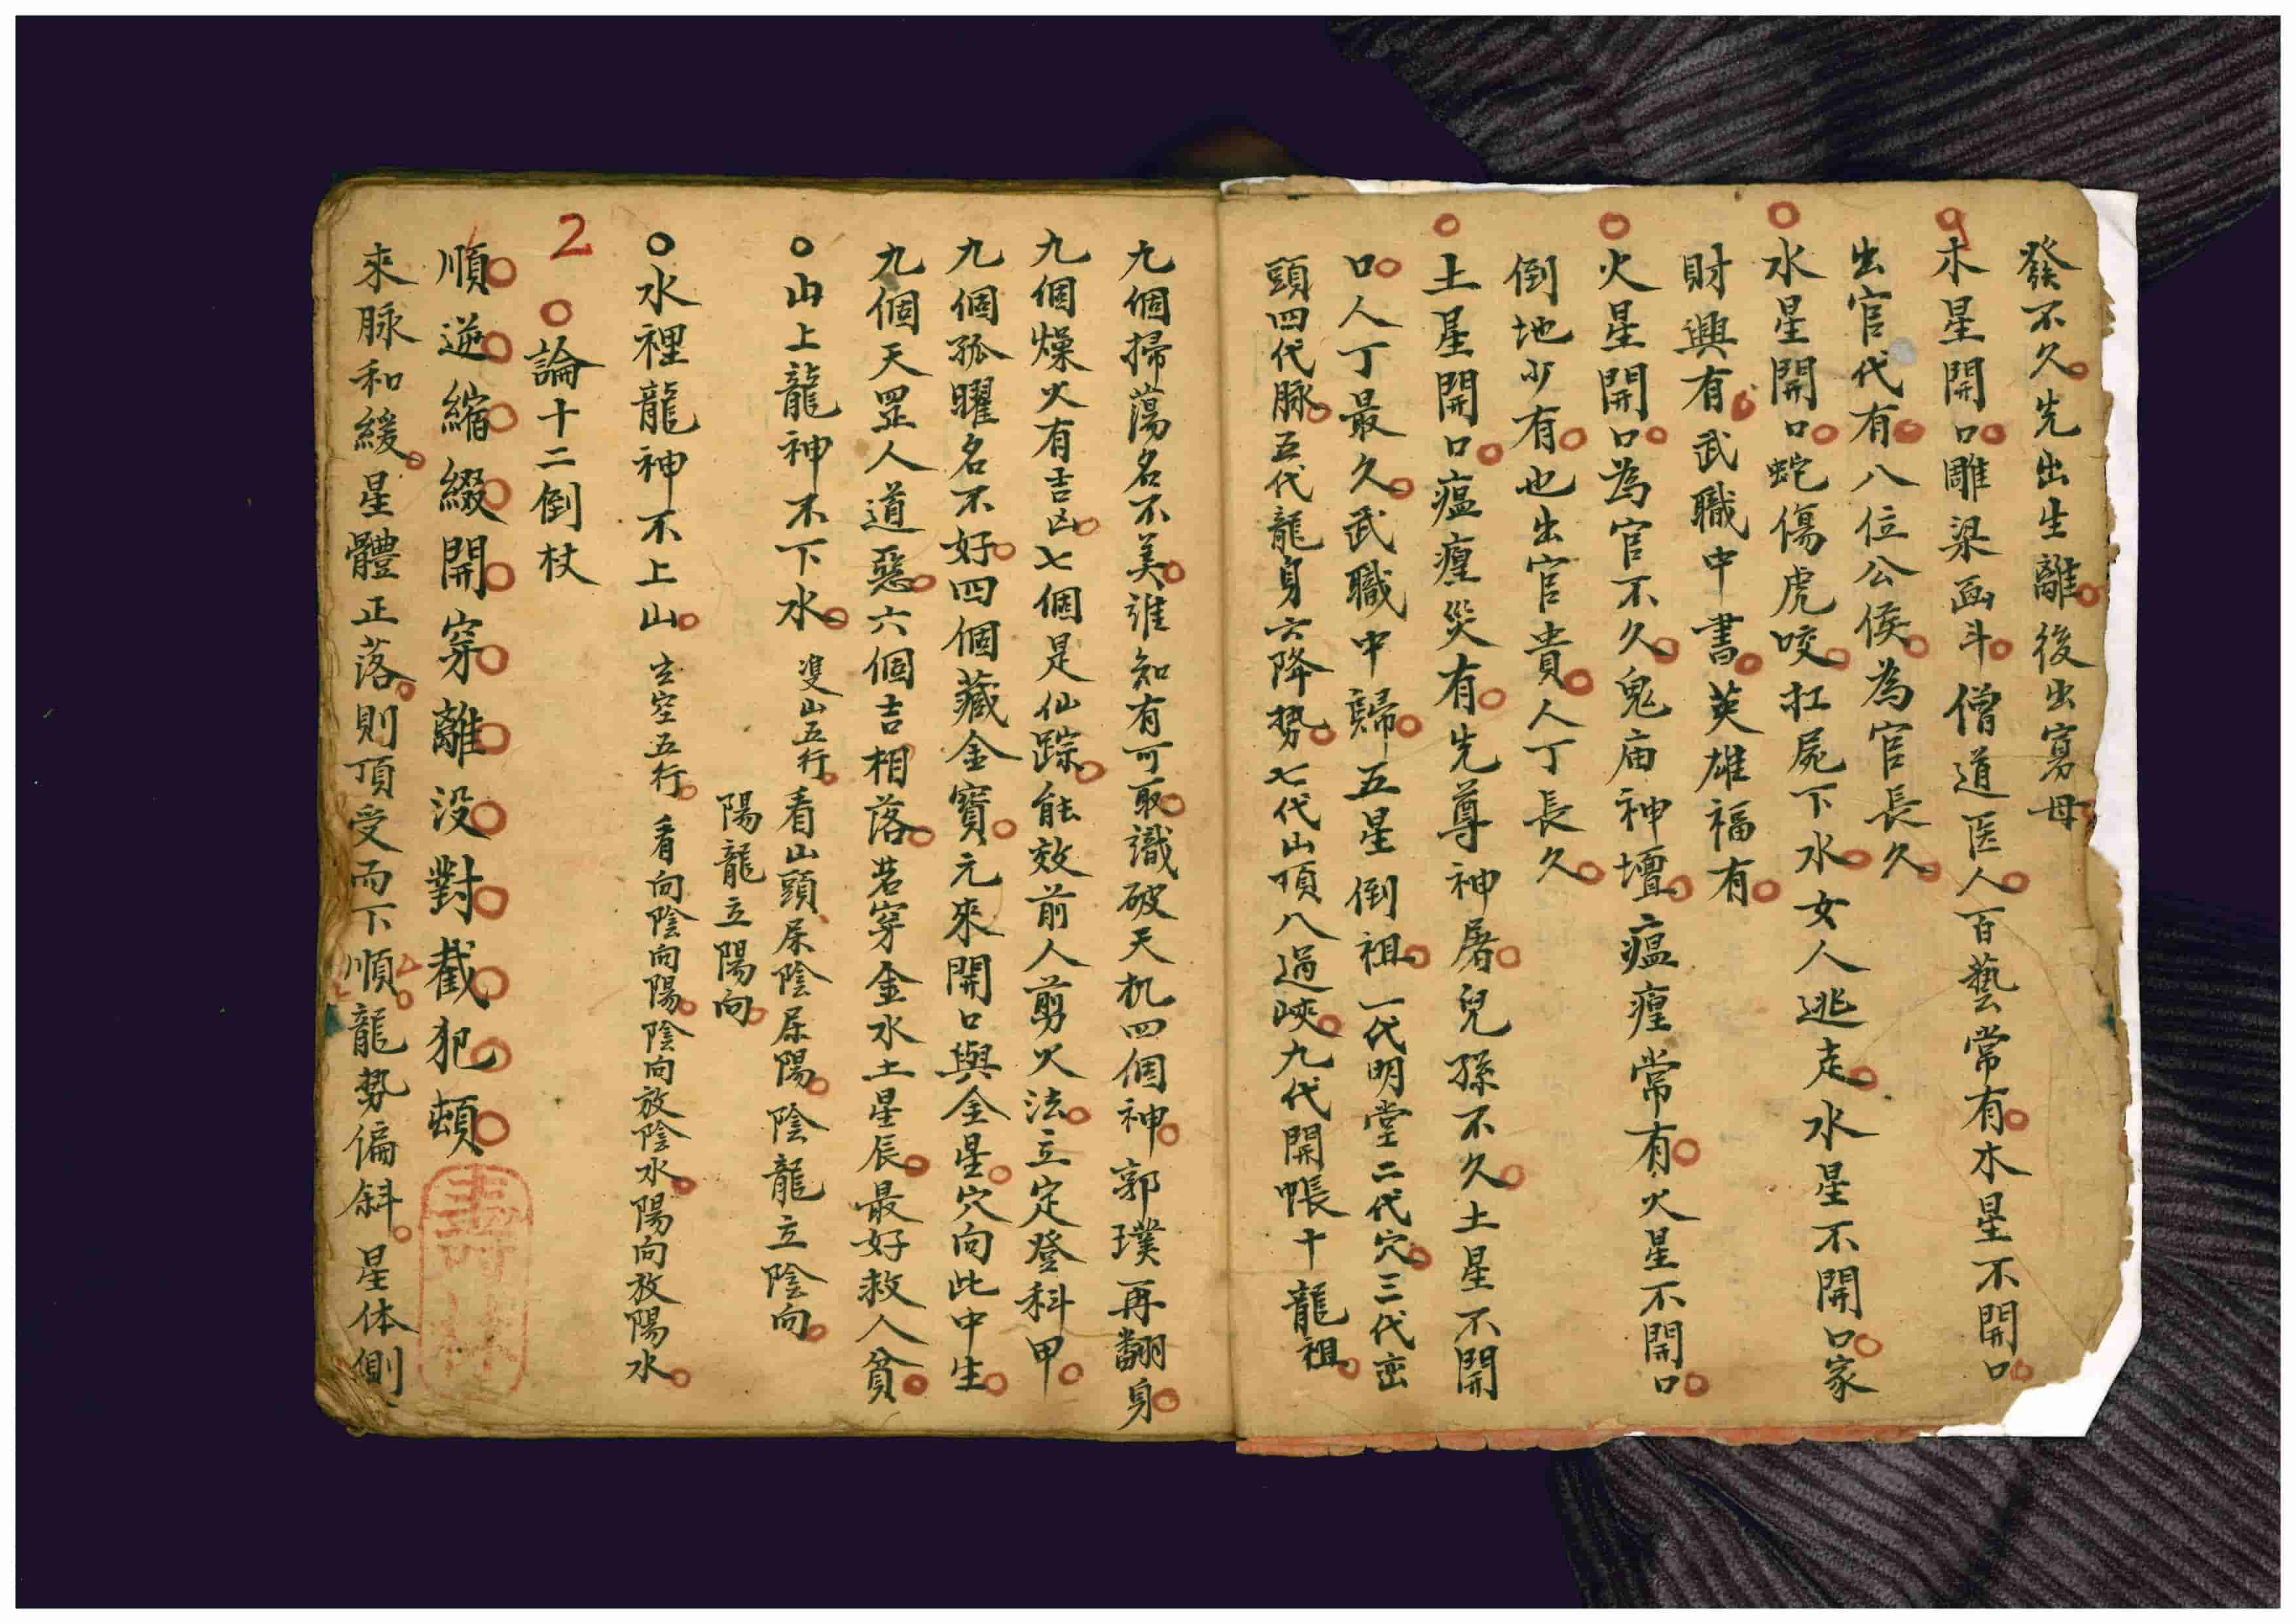 發不久先出生離後出寡母
木星開口雕梁畫斗僧道医人百藝常有木星不開口
出官代有八位公侯為官長久
水星開口蛇傷虎咬扛屍下水女人逃走水星不開口家
財興有武職中書英雄福有
火星開口為官不久鬼庙神壇瘟瘟常有火星不開口
倒地少有也出官貴人丁長久
土星開口瘟瘟災有先尊神屠兒孫不久土星不開
口人丁最久武職中歸五星倒祖一代明堂二代穴三代峦
頭四代脉五代龍身六降势七代山頂八過峽九代開帳十龍祖
九個掃蕩名不美誰知有可取識破天机四個神郭璞再翻身
九個燥火有吉凶七個是仙踪能效前人剪火法立定登科甲
九個孤曜名不好四個藏金寶元來開口與金星穴向此中生
九個天罡人道惡六個吉相落若穿金水土星辰最好救人貧
山上龍神不下水雙山五行看山頭屎陰屎陽陰龍立陰向
陽龍立陽向
水裡龍神不上山玄空五行看向陰向陽陰向放陰水陽向放陽水
2 論十二倒杖
順逆縮綴開穿離没對截犯頓
來脉和緩星體正落則頂受而下順龍勢偏斜星体側
壽